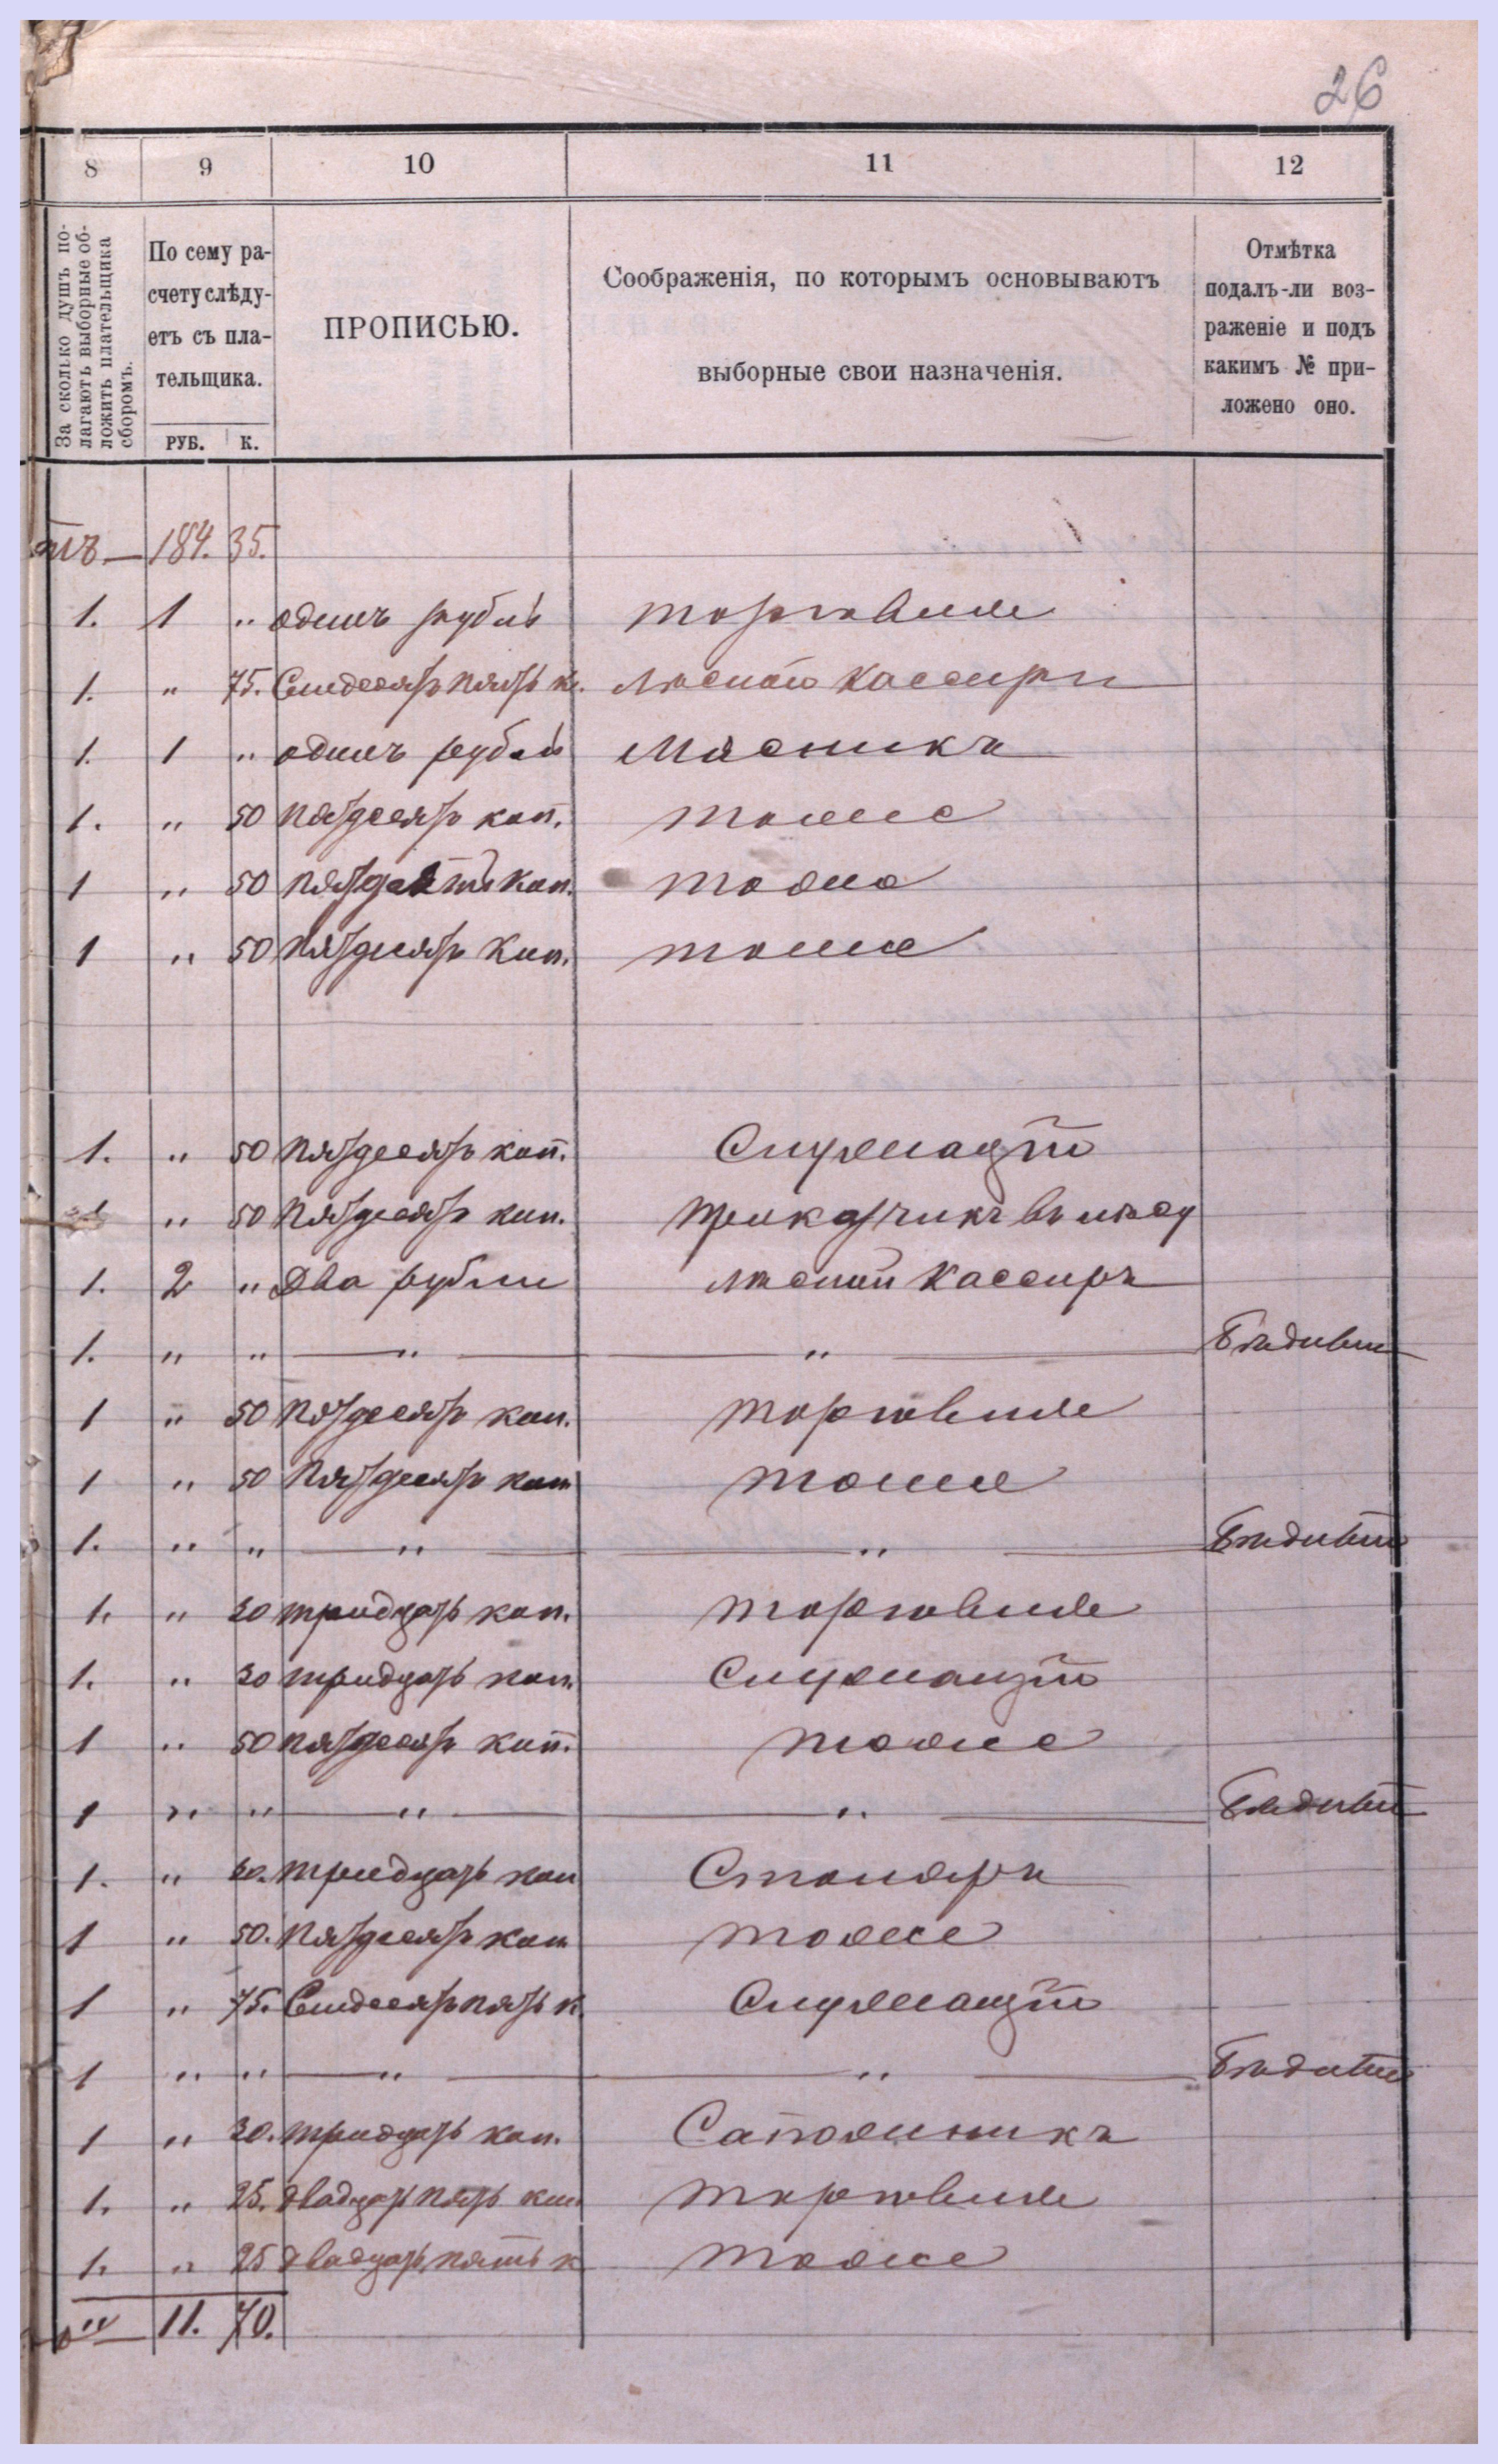 26
8 9 10 11 12
За сколько душъ по-
лагаютъ выборные об-
ложить плательщика
сборомъ.
По сему ра-
счету слѣду-
етъ съ пла-
тельщика.
РУБ. К.
ПРОПИСЬЮ.
Соображенія, по которымъ основываютъ
выборные свои назначенія.
Отмѣтка
подалъ-ли воз-
раженіе и подъ
какимъ № при-
ложено оно.
184. 35.
1. 1 " одинъ рубль торговля
1. " 75. Семдесятъ пять к. лѣсной кассиръ
1. 1 " одинъ рубль Мясникъ
1. " 50 пятдесятъ коп. тоже
1 " 50 пятдесятъ коп. тоже
1 " 50 пятдесятъ коп. тоже
1. " 50 пятдесятъ коп. Служащій
1 " 50 пятдесятъ коп. прикащикъ въ лѣсу
1. 2 " Два рубли лѣсной кассиръ
1. " " " "
1 " 50 пятдесятъ коп. торговля
1 " 50 пятдесятъ коп тоже
1. " " " "
1. " 30 тридцать коп. торговля
1. " 30 тридцать коп. Служащій
1 " 50 пятдесятъ коп. тоже
1 " " " "
1. " 30. тридцать коп Столяръ
1 " 50. пятдесятъ коп тоже
1 " 75. Семдесятъ пять к. Служащій
1 " " " "
1 " 30. тридцать коп. Сапожникъ
1. " 25. двадцать пять коп торговля
1. " 25 двадцать пять к тоже
" 11. 70.